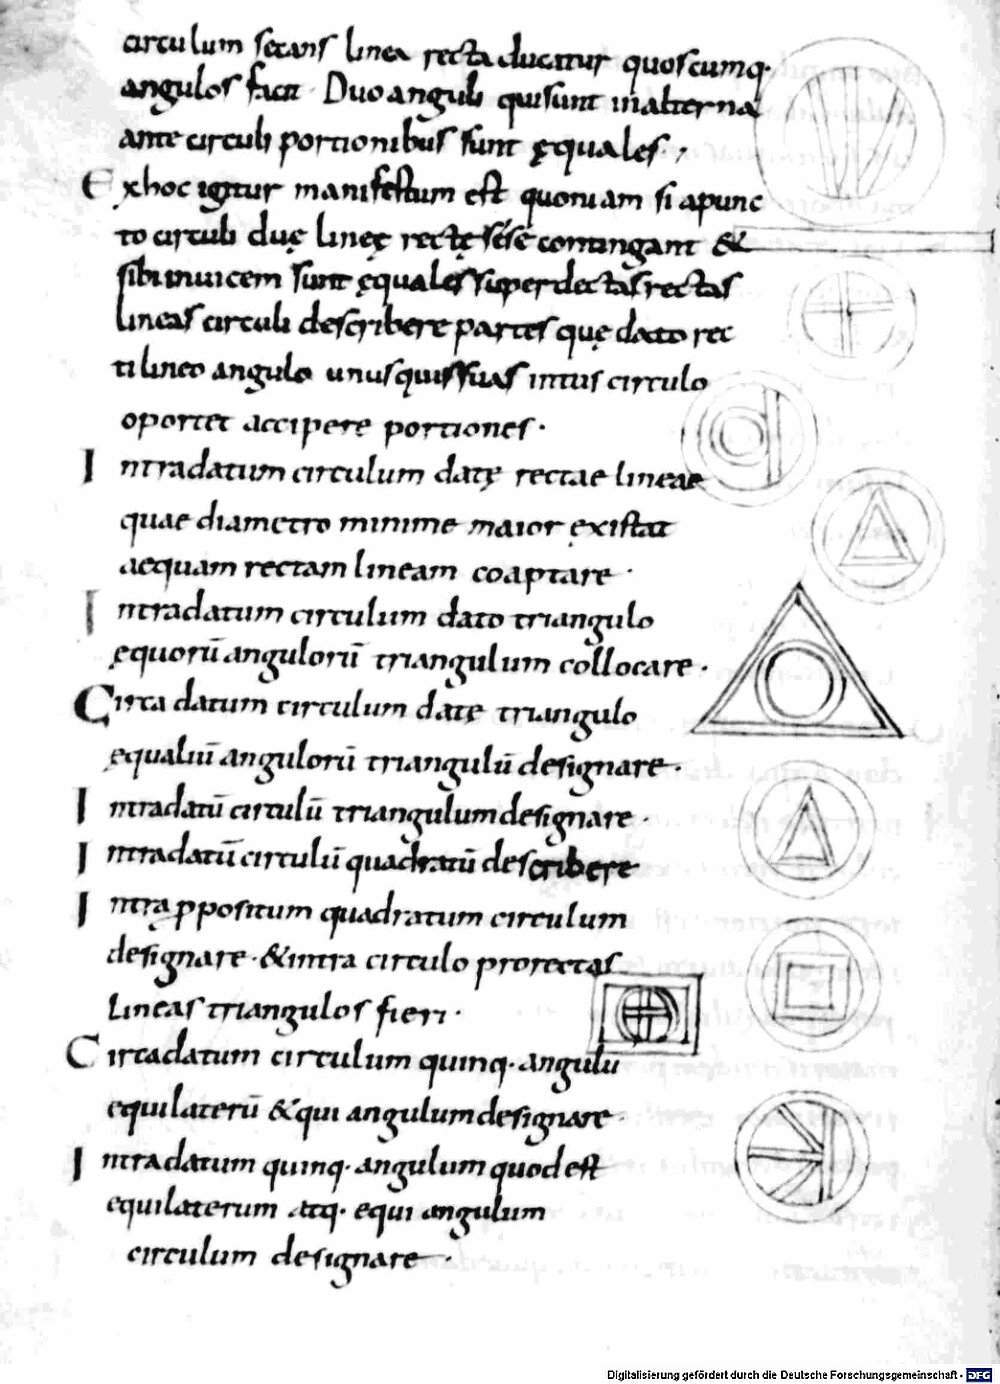 circulum secans linea recta ducatur quoscumq·
angulos facit · Duo anguli qui sunt in alterna
ante circuli portionibus sunt ęquales ·,
Ex hoc igitur manifestum est quoniam si a punc
to circuli duę lineę rectę sese contingant &
sibi inuicem sunt ęquales super dectas rectas
lineas circuli describere partes quę dato rec
ti lineo angulo unus quis suas intus circulo
oportet accipere portiones ·
Intra datum circulum datę rectae lineae
quae diametro minime maior ęxistat
aequam rectam lineam coaptare ·
Intra datum circulum dato triangulo
ęquorū angulorū triangulum collocare ·
Circa datum circulum datę triangulo
ęqualiū angulorū triangulū designare ·
Intra datū circulū triangulum designare ·
Intra datū circulū quadratū describere
Intra ppositum quadratum circulum
designare · & intra circulo pro rectas
lineas triangulos fieri ·
Circa datum circulum quinq· angulu
equilaterū & qui angulum designare ·
Intra datum quinq· angulum quod est
equilaterum atq· equi angulum
circulum designare ·
Digitalisierung gefördert durch die Deutsche Forschungsgemeinschaft - DFG